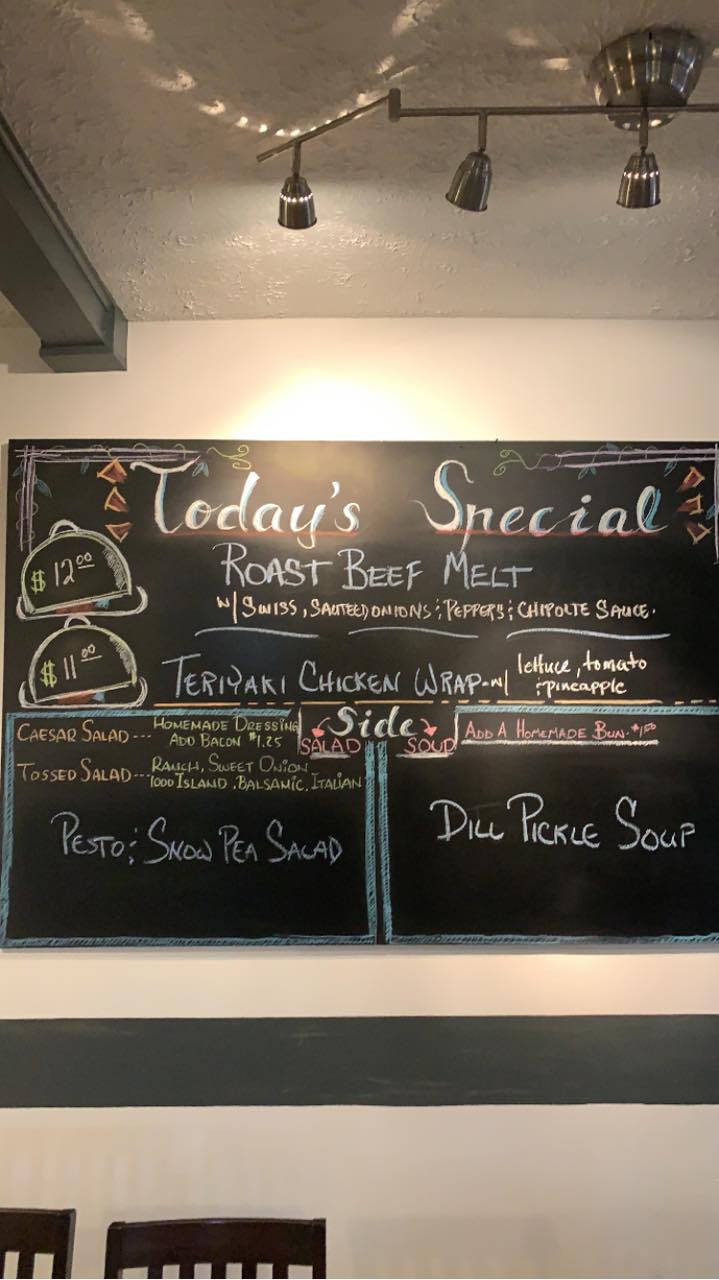 Today's Special
$12.00
ROAST BEEF MELT
W/ SWISS, SAUTEED ONIONS & PEPPERS & CHIPOLTE SAUCE.
$11.00
TERIYAKI CHICKEN WRAP - W/ lettuce, tomato
& pineapple
Side
SALAD SOUP
CAESAR SALAD --- HOMEMADE DRESSING
ADD BACON $1.25
TOSSED SALAD --- RANCH, SWEET ONION
1000 ISLAND, BALSAMIC, ITALIAN
PESTO & SNOW PEA SALAD
ADD A HOMEMADE BUN - $1.50
DILL PICKLE SOUP